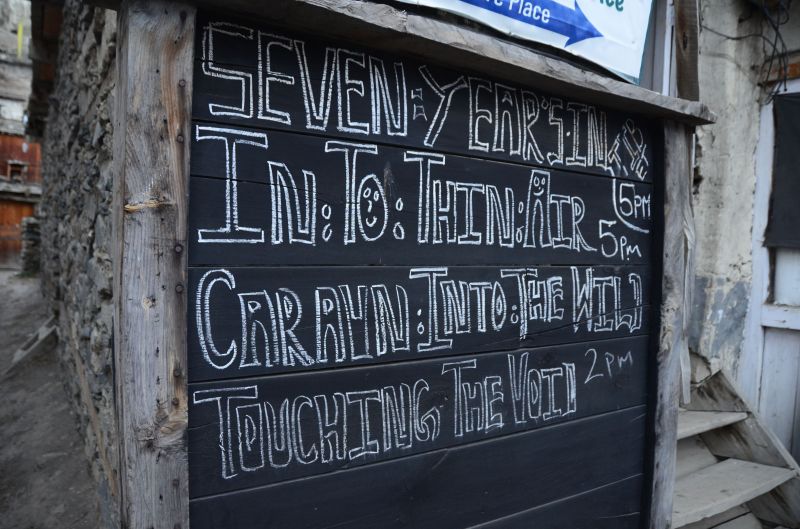 ve Place
ice
SEVEN:YEAR'S:IN
5PM
IN:TO:THIN:AIR 5pm
CARAVN:INTO:THE WILD
TOUCHING THE VOID 2PM